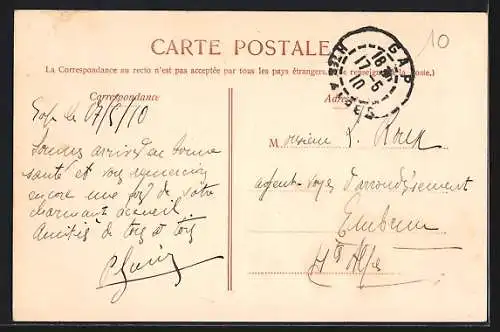 CARTE POSTALE
La Correspondance au recto n'est pas acceptée par tous les pays étrangers. (Se renseigner à la Poste.)
Correspondance
Adresse
Gap le 17/5/10
Sommes arrivés en bonne
santé et vous remercions
encore une fois de votre
charmant accueil
Amitiés de tous à tous
M.onsieur L. Roux
agent-voyer d'arrondissement
Embrun
Htes Alpes
GAP
18
17-5
10
HTES ALPES
10